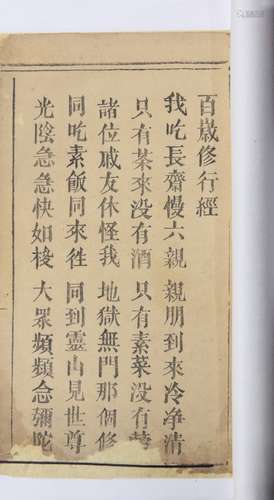 百歲修行經
我吃長齋慢六親 親朋到來冷净清
只有茶來没有酒 只有素菜没有葷
諸位戚友休怪我 地獄無門那個修
同吃素飯同來徃 同到靈山見世尊
光陰急急快如梭 大眾頻頻念彌陀